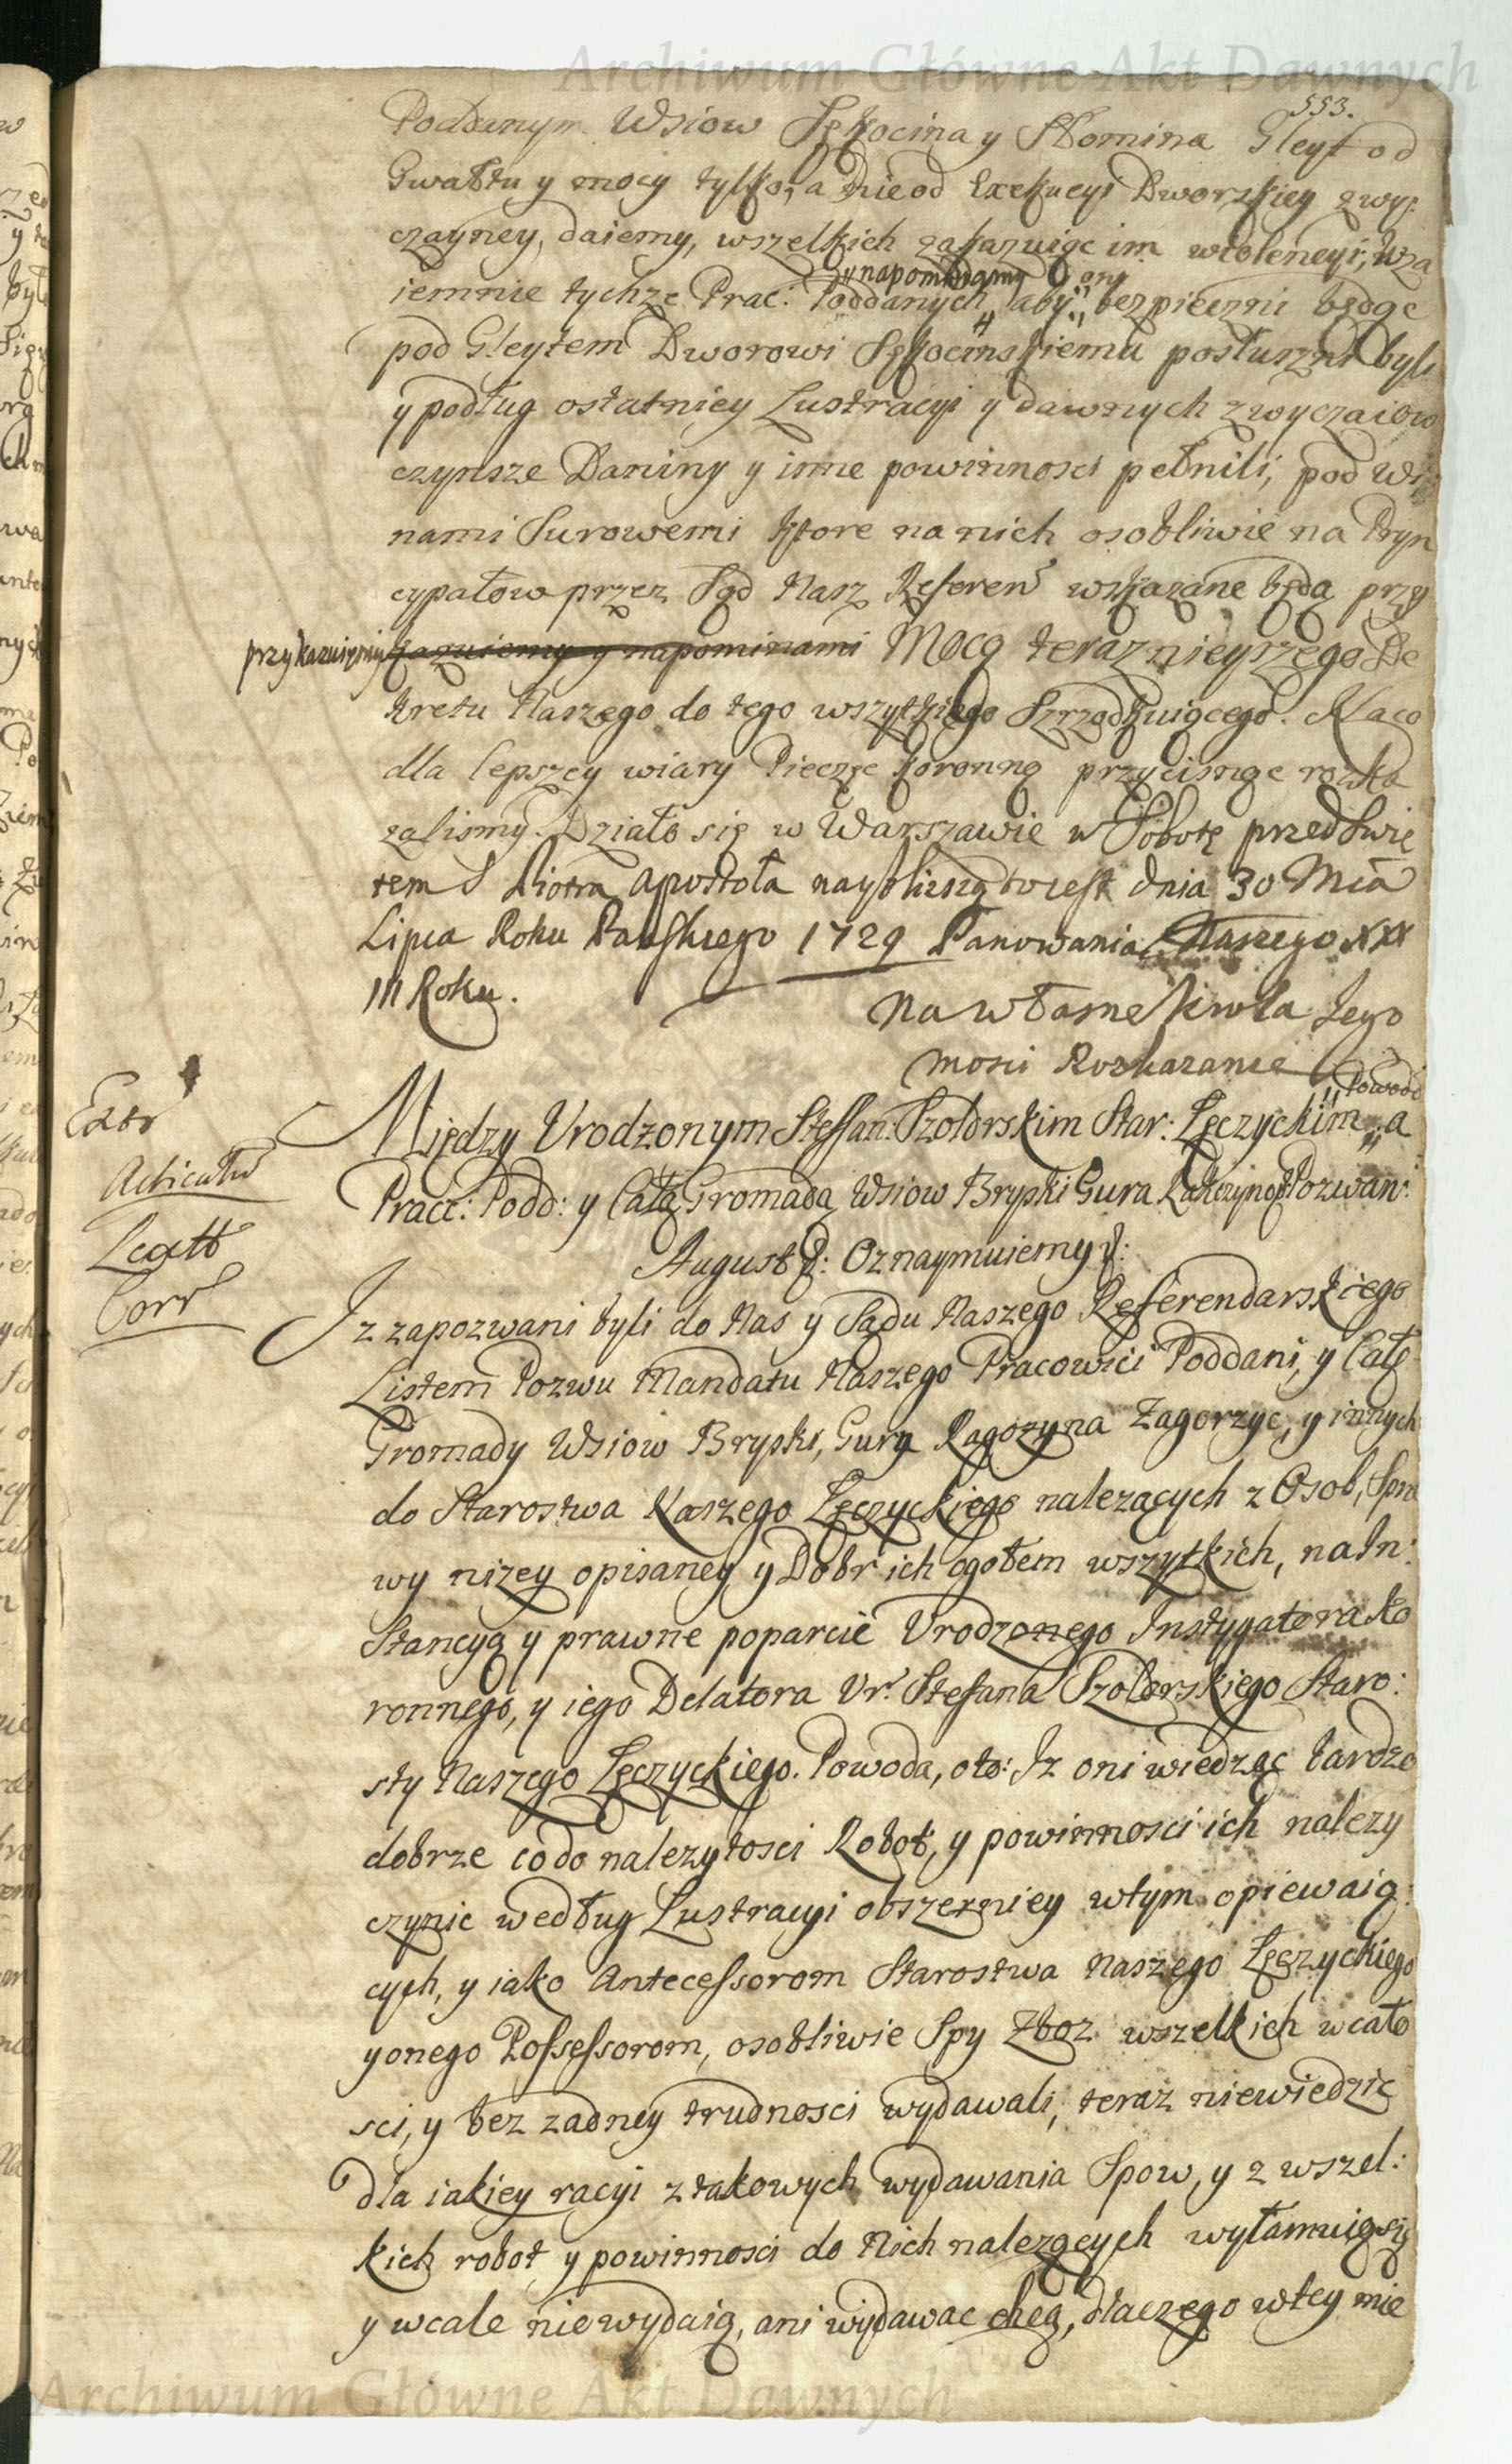 553.
Poddanym Wsiow Sękocina y Słomina Gleyt od
Gwałtu y mocy tylko, a nie od Exekucyi Dworskiey zwy:
czayney, daiemy, wszelkich zakazuiąc im wiolencyi, Wza
y napominamy oni
iemnie tychże Prac: Poddanych, aby bezpieczni będąc
pod Gleytem Dworowi Sękocinskiemu posłuszni byli
y podług ostatniey Lustracyi y dawnych zwyczaiow
czynsze Daniny y inne powinnosci pełnili, pod Wi
nami Surowemi ktore na nich osobliwie na Pryn
cypałow przez Sąd Nasz Referen wskazane będą przy
przykazuiemy kazuiemy y napominami Mocą teraznieyszego De
kretu Naszego do tego wszytkiego Szrządkuiącego. Na co
dla lepszey wiary Pieczęc koronną przycisnąc rozka
zalismy. Działo się w Warszawie w Sobotę przed Swię
tem S Piotra Apostoła nayblizszą to iest dnia 30 Mca
Lipca Roku Panskiego 1729 Panowania Naszego XXX
III Roku.
Na własne Krola Jego
mosci Rozkazanie
Powod
Extr
Między Vrodzonym Steffan: Szołdrskim Star: Łęczyckim a
Acticatur
Pracc: Podd: y Całą Gromadą Wsiow Bryski Gura Pozwan:
Lectt
August D: Oznaymuiemy
Corr
Iz zapozwani byli do Nas y Sądu Naszego Referendarskiego
Listem Pozwu Mandatu Naszego Pracowici Poddani, y Całe
Gromady Wsiow Bryski, Gury Zagorzyc, y innych
do Starostwa Naszego Łęczyckiego nalezących z Osob, Spra
wy nizey opisaney y Dobr ich ogołem wszytkich, na In:
stancyą y prawne poparcie Vrodzonego Instygatora Ko
ronnego, y iego Delatora Vr. Stefana Szołdrskiego Staro:
sty Naszego Łęczyckiego. Powoda, oto: Iz oni wiedząc bardzo
dobrze co do nalezytosci Robot, y powinnosci ich nalezy
czynic według Lustracyi obszerniey w tym opiewaią:
cych, y iako Antecessorom Starostwa Naszego Łęczyckiego
y onego Possessorom, osobliwie Spy Zboz wszelkich w cało
sci, y bez zadney trudnosci wydawali, teraz niewiedzic
dla iakiey racyi z takowych wydawania Spow, y z wszel:
kich robot y powinnosci do Nich nalezących wyłamuią się
y wcale nie wydaią, ani wydawac chcą, dlaczego w tey mie